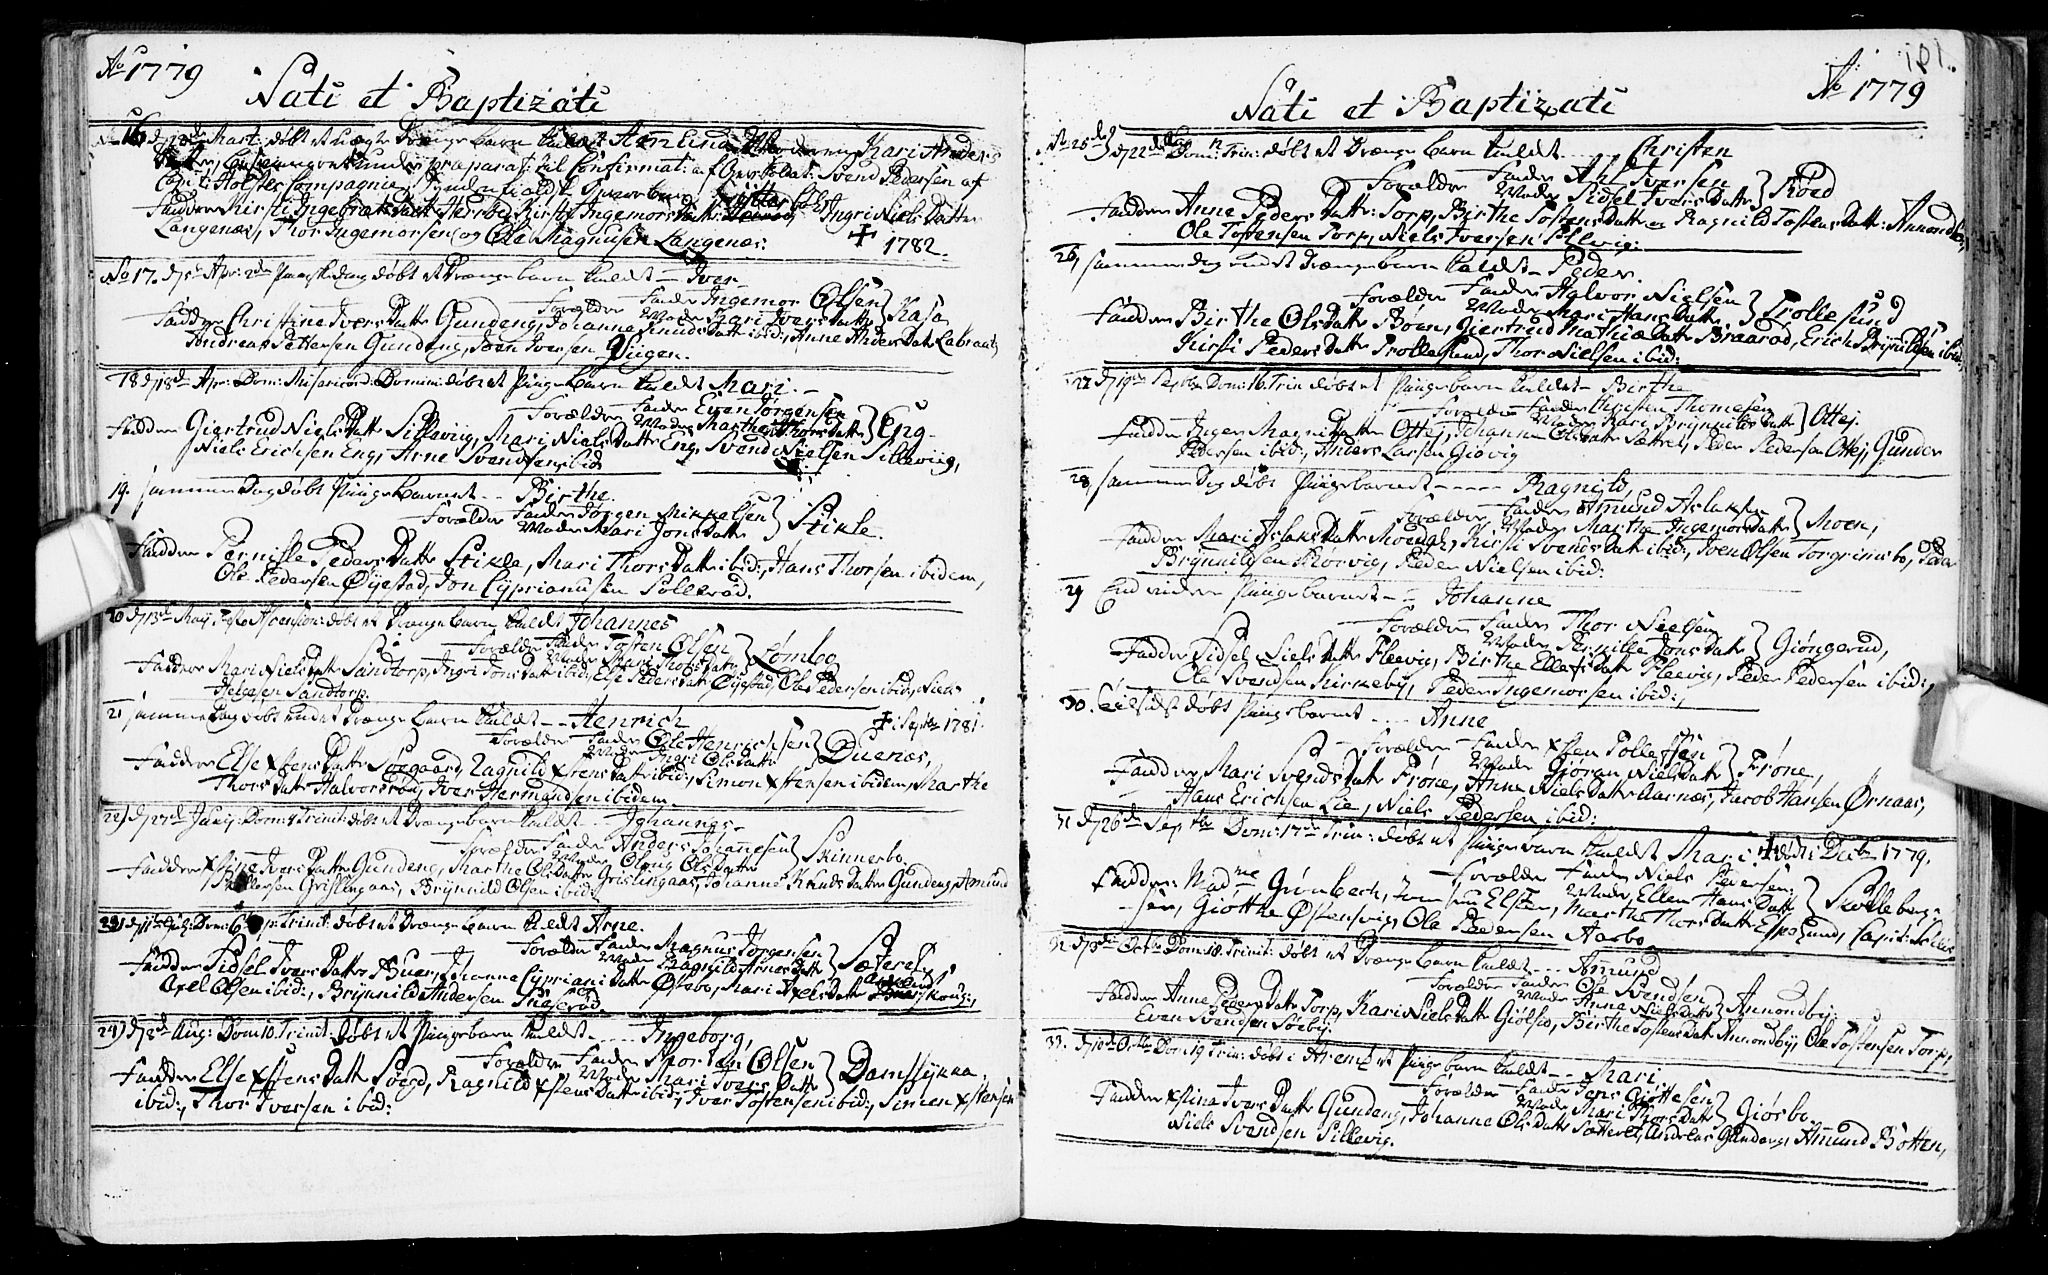 Aō 1779
Nati et Baptizati
16 Mart: døbt et uægte Drænge barn kaldt Moderen Kari Anders
til Confirmat: af Svend Pedersen af
Capit: Holsts Compagnie
Faddere Kirsti Ingebretsdatt Herrebø, Kirsti Ingemorsdatt: Ingri Niels Datter
Langenæs, Thor Ingemorsen og Ole Magnusen Langenæs: ✝ 1782.
No 17. Apr: 2den Paaskedag døbt et Drænge barn kaldt — Iver
Forælder Fader Ingemor Olsen
Moder Kari Iversdatter } Kasa
Faddere Christine Ivers Datter Gundeng, Johanna Knuds Datter ibid:, Anne Anders Datt Labraat,
Andreas Pettersen Gundeng, Joen Iversen
18 d 18de Apr: Dom: Misericord: Domini døbt et Pigebarn kaldt Mari. —
Forælder Fader Even Jørgensen
Moder Marthe Thorsdatter } Eng
Faddere Giertrud Niels Datter Silleviig, Mari Niels Datter Eng, Svend Nielsen Silleviig,
Niels Erichsen Eng, Arne Svendsen ibid
19. samme Dag døbt Pigebarnet -- Birthe.
Forælder Fader Jørgen Mikkelsen
Moder Mari Jonsdatter } Stikle
Faddere Pernille Peders Datter Stikle, Mari Thors Datter ibid:, Hans Thorsen ibidem,
Ole Pedersen Øyestad, Jon Cyprianusen Pollerød.
20 d 13de Maij Festo Ascension: døbt et Drænge barn kaldt Johannes
Forælder Fader Tosten Olsen
Moder Mari Thorsdatter } Lømbo
Faddere Mari Niels Datter Sandtorp, Ingri Jons Datt ibid:, Else Peders Datt Øyestad, Ole Pedersen ibid:, Niels
Helgesen Sandtorp.
21 samme Dag døbt end et Drænge barn kaldt -- Henrich ✝ i Septbr 1781.
Forælder Fader Ole Henrichsen
Moder Ingri Olsdatter } Duenæs,
Faddere Else Xstens Datter Søegaard, Ragnild Xstens Datt ibid:, Simon Xstensen ibidem, Marthe
Thors Datter Halvorsrød, Iver Hermandsen ibidem.
22) d 27de Junij Dom: 4 Trinit: døbt et Drænge barn kaldt — Johannes
Forælder Fader Anders Johannesen
Moder Olsdatter } Skinnerbo.
Faddere Xstine Ivers Datter Gundeng, Marthe Ols Datter Grislingaas, Johanne Knuds Datter Gundeng, Amund
Grislingaas, Brynnild Olsen ibid:
23) d 11te Julj: Dom: 6 p: Trinit: døbt et Drænge barn kaldt Arne.
Forælder Fader Magnus Jørgensen
Moder Ragnild Arnesdatt } Sæteret
Faddere Sidsel Ivers Datter Buer, Johanne Cypriani Datter Østebo, Mari Axels Datter
Axel Olsen ibid:, Brynnild Andersen
24) d 8de Aug: Dom: 10. Trinit: døbt et Pigebarn kaldt ---- Ingeborg,
Forælder Fader Olsen
Moder Mari Ivers Datter } Damsslykka.
Faddere Else Xstens Datter Søegd, Ragnild Xstens Datter ibid:, Iver Tostensen ibid:, Simen Xstensen
ibid:, Thor Iversen ibid:
181.
Aō 1779
Nati et Baptizati
No 25 d 22de Dom: 12 Trin: døbt et Drænge barn kaldt ---- Christen
Forælder Fader Axl Iversen
Moder Sidsel Ivers Datter } Røed
Faddere Anne Peders Datter: Torp, Birthe Tostens Datter og Ragnild Tostens Datt: Amondbye,
Ole Tostensen Torp, Niels Iversen Sillevig:
26, samme dag end et Drænge barn kaldt — Peder.
Forælder Fader Halvor Nielsen
Moder Mari Hans Datter } Trollesund
Faddere Birthe Ols Datter Bøen, Giertrud Mathiæ Datter Braarød, Erich Brynildsen ibid:
Kirsti Peders Datter Trollesund, Thor Nielsen ibid:
27 d 19de Septbr Dom: 16. Trin døbt et Pigebarn kaldt — Birthe
Forælder Fader Christen Thomesen
Moder Kari Brynnilds Datter } Ottej.
Faddere Inger Magni Datter Ottej, Johanne Ols Datter Sætret, Peder Pedersen Ottej, Gunder
Pedersen ibid:, Anders Larsen Giøvig
28, samme Dag døbt Pigebarnet ----- Ragnild
Forælder Fader Amund Aslaksen
Moder Marthe Ingemorsdatter } Moen,
Faddere Mari Aslaks Datter Moen, Kirsti Svends Datt ibid:, Iven Olsen Torgrimsbo, Peder
Brynnildsen Skørvig, Peder Nielsen ibid:
29 End videre Pigebarnet -- Johanne
Forælder Fader Thor Nielsen
Moder Pernille Jonsdatt } Giøngerud,
Faddere Sidsel Niels Datter Pleevig, Birthe Ellefsdatt Pleevig, Peder Pedersen ibid:,
Ole Svendsen Kirkeby, Peder Ingemorsen ibid:,
30. Til sidst døbt Pigebarnet ---- Anne
Forælder Fader Xsten Pollessen
Moder Giøran Nielsdatt } Frøne,
Faddere Mari Svends Datter Frøne, Anne Niels Datter Aarnæs, Jacob Hansen Ørnaas,
Hans Erichsen Lie, Niels Pedersen ibid:
31 d 26de Septbr Dom: 17de Trin: døbt et Pigebarn kaldet Mari ✝ død i Decbr 1779.
Forælder Fader Niels Pedersen
Moder, Ellen Hans Datt } Skolleberg
Faddere: Madme Grønbech, Jomfru Elsten, Marthe Thors Datter Espelund, Capit:
Giøthe Østensvig, Ole Pedersen Aasbo
32 d 3de Octbr Dom: 18. Trinit: døbt et Drænge barn kaldt --- Amund
Forælder Fader Ole Svendsen
Moder Anne Niels Datter } Amondbÿ:
Faddere Anne Peders Datter Torp, Kari Niels Datter Giølsø, Birthe Tostens Datt Amondbÿ, Ole Tostensen Torp,
Even Svendsen Søebÿ:
33. d 10de Octbr Dom: 19 Trin: døbt i Aremk et Pigebarn kaldt -- Mari
Forælder Fader Jens Giøttesen
Moder Mari Thors Datt } Giøsbo,
Faddere Xstina Ivers Datter Gundeng, Johanne Ols Datter Sætteret, Andreas Gundeng, Amund Bøtten,
Niels Svendsen Sillevig.